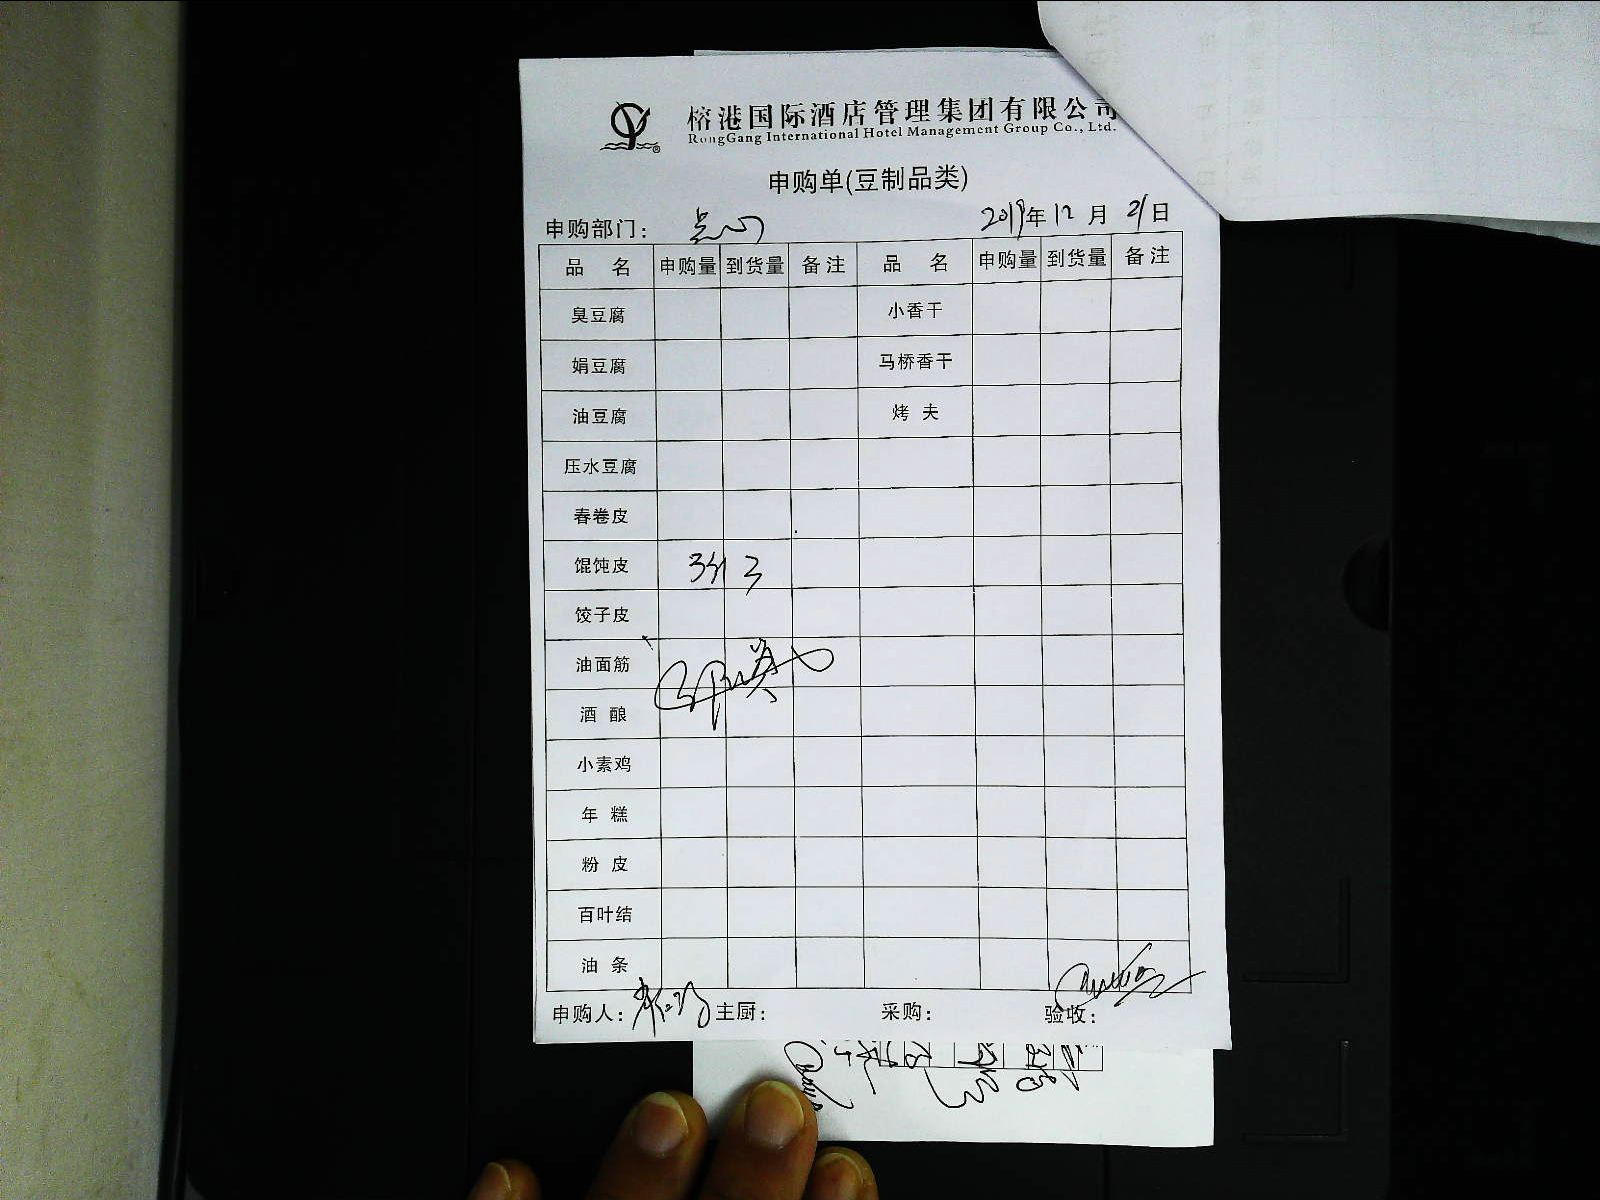 榕港国际酒店管理集团有限公司
RongGang International Hotel Management Group Co., Ltd.
申购单(豆制品类)
申购部门： 点心 2019年12月21日
品 名 申购量 到货量 备注 品 名 申购量 到货量 备注
臭豆腐 小香干
娟豆腐 马桥香干
油豆腐 烤 夫
压水豆腐
春卷皮
馄饨皮 3斤 3
饺子皮
油面筋
酒 酿
小素鸡
年 糕
粉 皮
百叶结
油 条
申购人： 主厨： 采购： 验收：